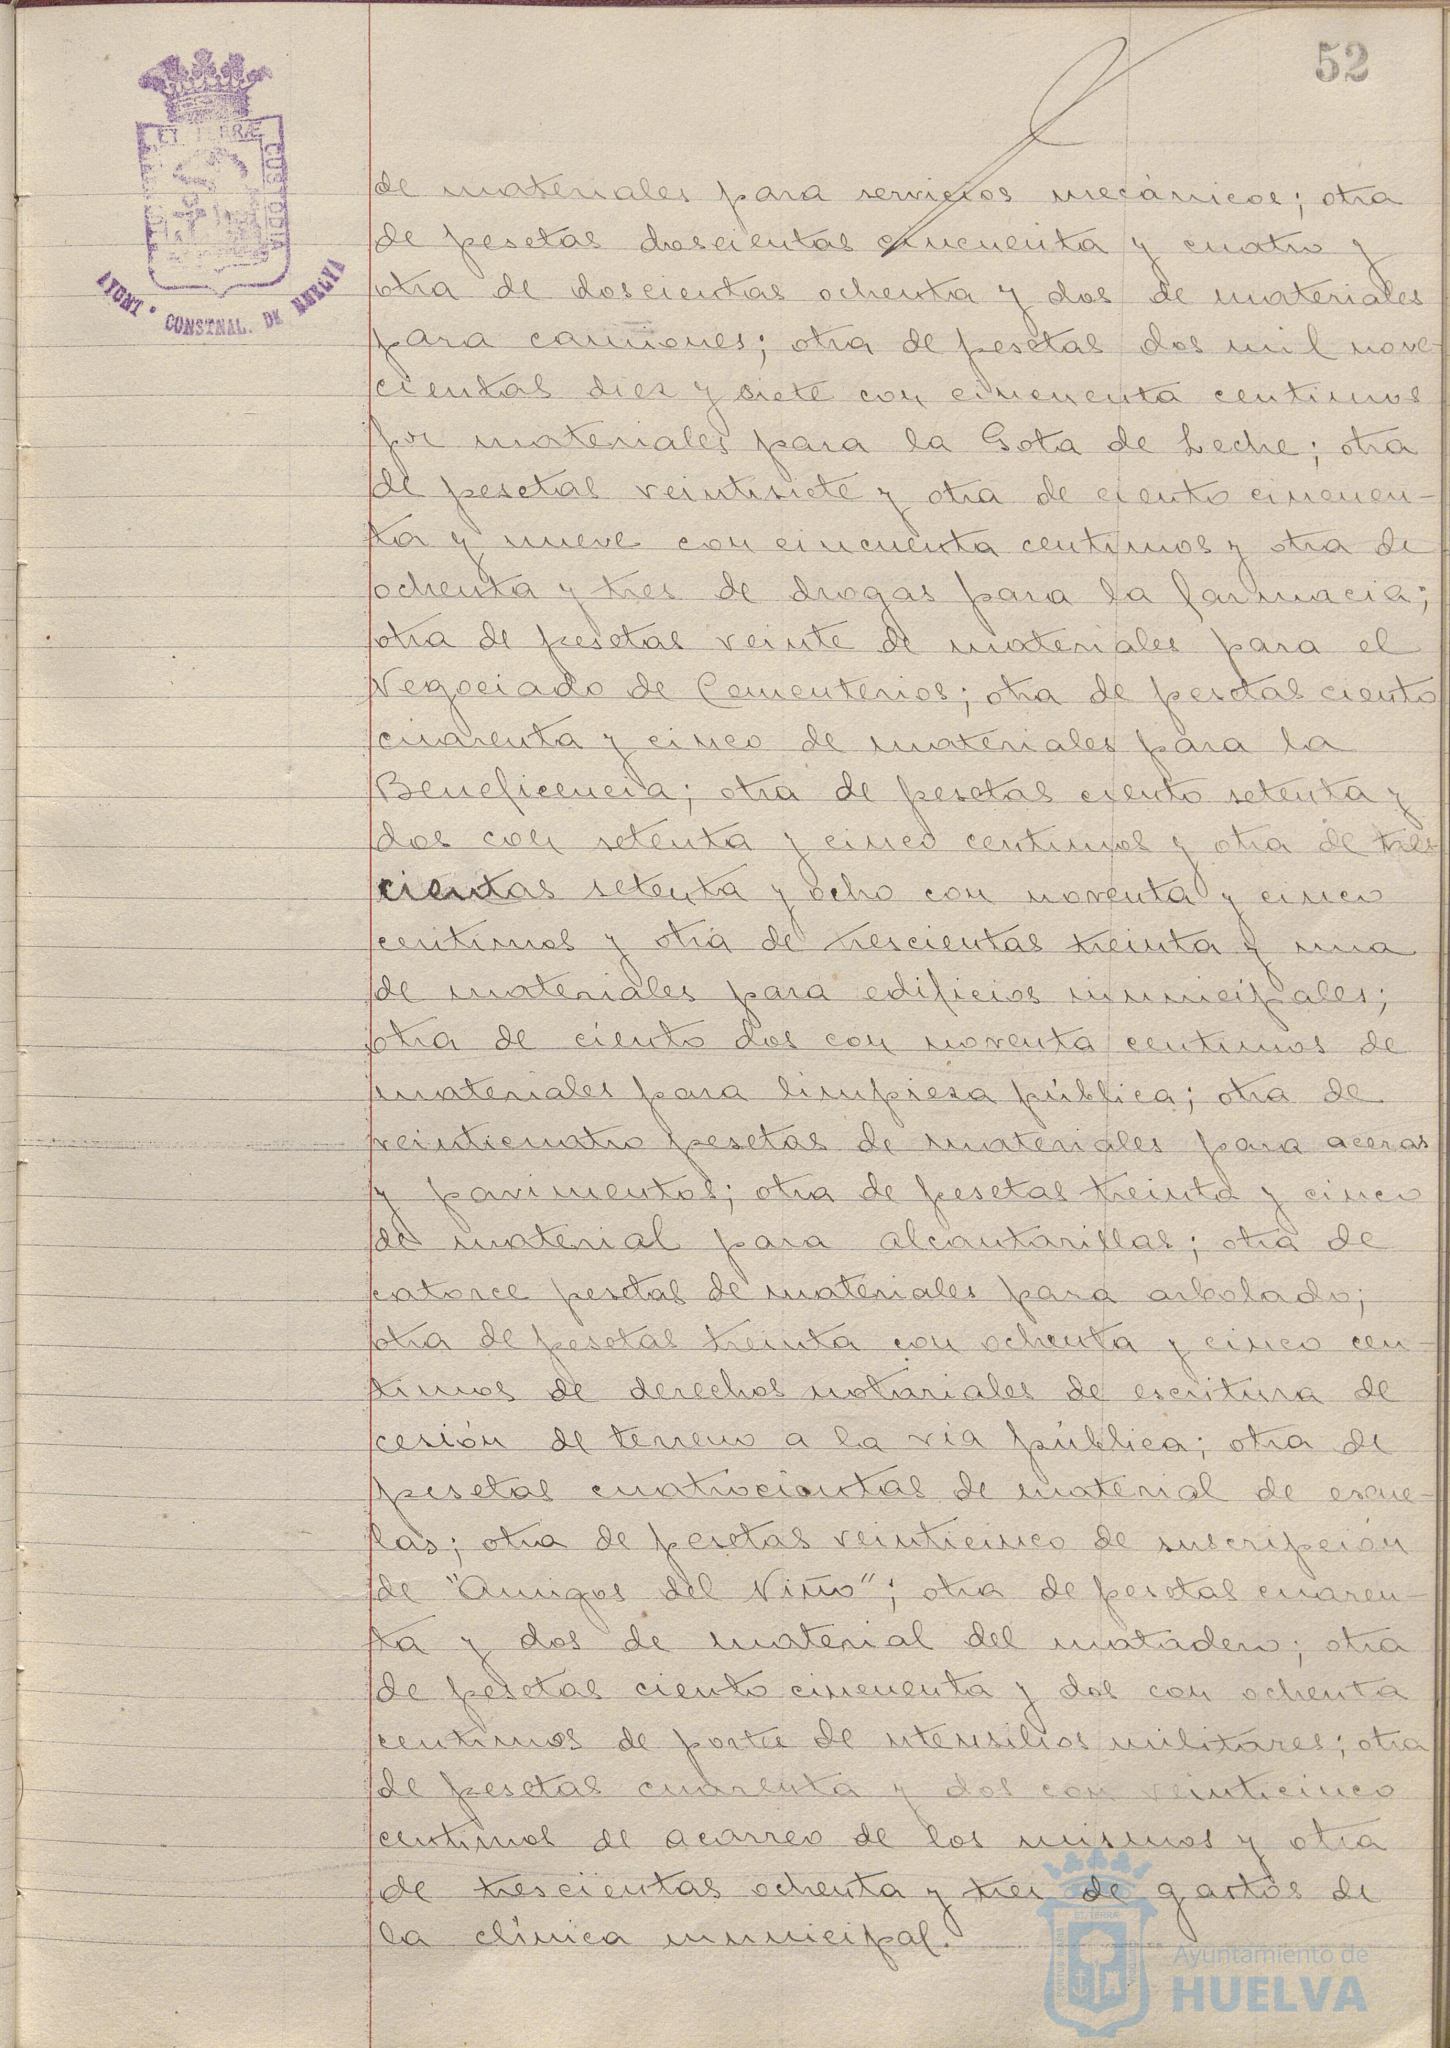 52
ET TERRÆ CUSTODIA
AYUNT° CONSTNAL. DE HUELVA
de materiales para servicios mecánicos; otra
de pesetas doscientas cincuenta y cuatro y
otra de doscientas ochenta y dos de materiales
para camiones; otra de pesetas dos mil nove-
cientas diez y siete con cincuenta centimos
por materiales para la Gota de Leche; otra
de pesetas veintisiete y otra de ciento cincuen-
ta y nueve con cincuenta centimos y otra de
ochenta y tres de drogas para la farmacia;
otra de pesetas veinte de materiales para el
Negociado de Cementerios; otra de pesetas ciento
cuarenta y cinco de materiales para la
Beneficencia; otra de pesetas ciento setenta y
dos con setenta y cinco centimos y otra de tres
cientas setenta y ocho con noventa y cinco
centimos y otra de trescientas treinta y una
de materiales para edificios municipales;
otra de ciento dos con noventa centimos de
materiales para limpieza pública; otra de
veinticuatro pesetas de materiales para aceras
y pavimentos; otra de pesetas treinta y cinco
de material para alcantarillas; otra de
catorce pesetas de materiales para arbolado;
otra de pesetas treinta con ochenta y cinco cen-
timos de derechos notariales de escritura de
cesión de terreno a la via pública; otra de
pesetas cuatrocientas de material de escue-
las; otra de pesetas veinticinco de suscripción
de "Amigos del Niño"; otra de pesetas cuaren-
ta y dos de material del matadero; otra
de pesetas ciento cincuenta y dos con ochenta
centimos de porte de utensilios militares; otra
de pesetas cuarenta y dos con veinticinco
centimos de acarreo de los mismos y otra
de trescientas ochenta y tres de gastos de
la clínica municipal.
Ayuntamiento de
HUELVA